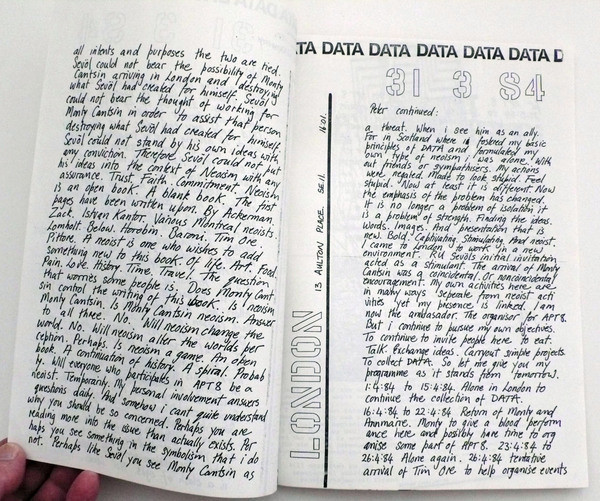 all intents and purposes the two are tied.
Sevōl could not bear the possibility of Monty
Cantsin arriving in London and destroying
what Sevōl had created for himself. Sevōl
could not bear the thought of working for
Monty Cantsin in order to assist that person
destroying what Sevōl had created for himself.
Sevōl could not stand by his own ideas with
any conviction. Therefore Sevōl could not put
his ideas into the context of Neoism with any
assurance. Trust. Faith. Commitment. Neoism
is an open book. A blank book. The first
pages have been written upon. By Ackerman,
Zack. Istvan Kantor. Various Montreal neoists.
Lomholt. Below. Horobin. Baroni. Tim Ore.
Pittore. A neoist is one who wishes to add
something new to this book. Of life. Art. Food.
Pain. Love. History. Time. Travel. The question
that worries some people is: Does Monty Cant
sin control the writing of this book. Is neoism
Monty Cantsin. Is Monty Cantsin neoism. Answer
to all three. No. Will neoism change the
world. No. Will neoism alter the worlds per
ception. Perhaps. Is neoism a game. An open
book. A continuation of history. A spiral. Probab
ly. Will everyone who participates in APT 8 be a
neoist. Temporarily. My personal involvement answers
questions daily. And somehow i cant quite understand
why you should be so concerned. Perhaps you are
reading more into the issue than actually exists. Per
haps you see something in the symbolism that i do
not. Perhaps like Sevōl you see Monty Cantsin as
DATA DATA DATA DATA DATA D
31 3 84
Peter continued:
a threat. When i see him as an ally.
For in Scotland where i fostered my basic
principles of DATA and formulated my
own type of neoism i was alone. With
out friends or sympathisers. My actions
were negated. Made to look stupid. Feel
stupid. Now at least it is different. Now
the emphasis of the problem has changed.
It is no longer a problem of isolation it
is a problem of strength. Finding the ideas.
Words. Images. And presentation that is
new. Bold. Captivating. Stimulating. And neoist.
I came to London to work in a new
environment. RU Sevōls initial invitation
acted as a stimulant. The arrival of Monty
Cantsin was a coincidental. Or noncoincidental
encouragement. My own activities here are
in many ways seperate from neoist acti
vities yet my presence is linked. I am
now the ambassador. The organisor for APT 8.
But i continue to pursue my own objectives.
To continue to invite people here to eat.
Talk. Exchange ideas. Carryout simple projects.
To collect DATA. So let me give you my
programme as it stands from tomorrow.
1:4:84 to 15:4:84. Alone in London to
continue the collection of DATA.
16:4:84 to 22:4:84 Return of Monty and
Annmarie. Monty to give a blood perform
ance here and possibly have time to org
anise some part of APT 8. 23:4:84 to
26:4:84 Alone again. 26:4:84 tentative
arrival of Tim Ore to help organise events
LONDON
13 AULTON PLACE. SE11. 16:01.